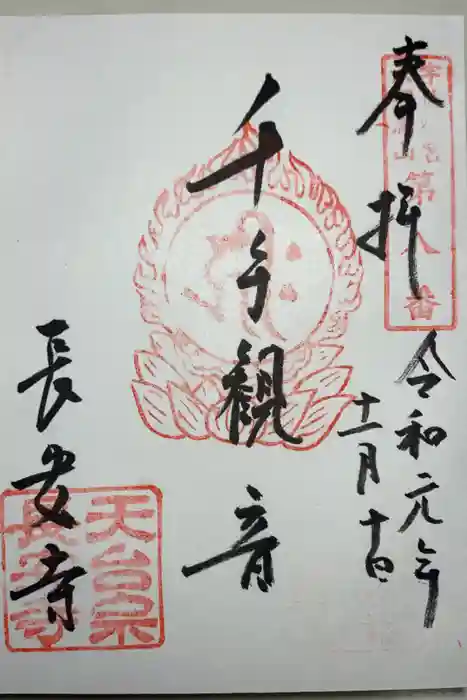 奉拝
第八番
令和元年
十一月十日
千手觀音
長安寺
天台宗
長安寺